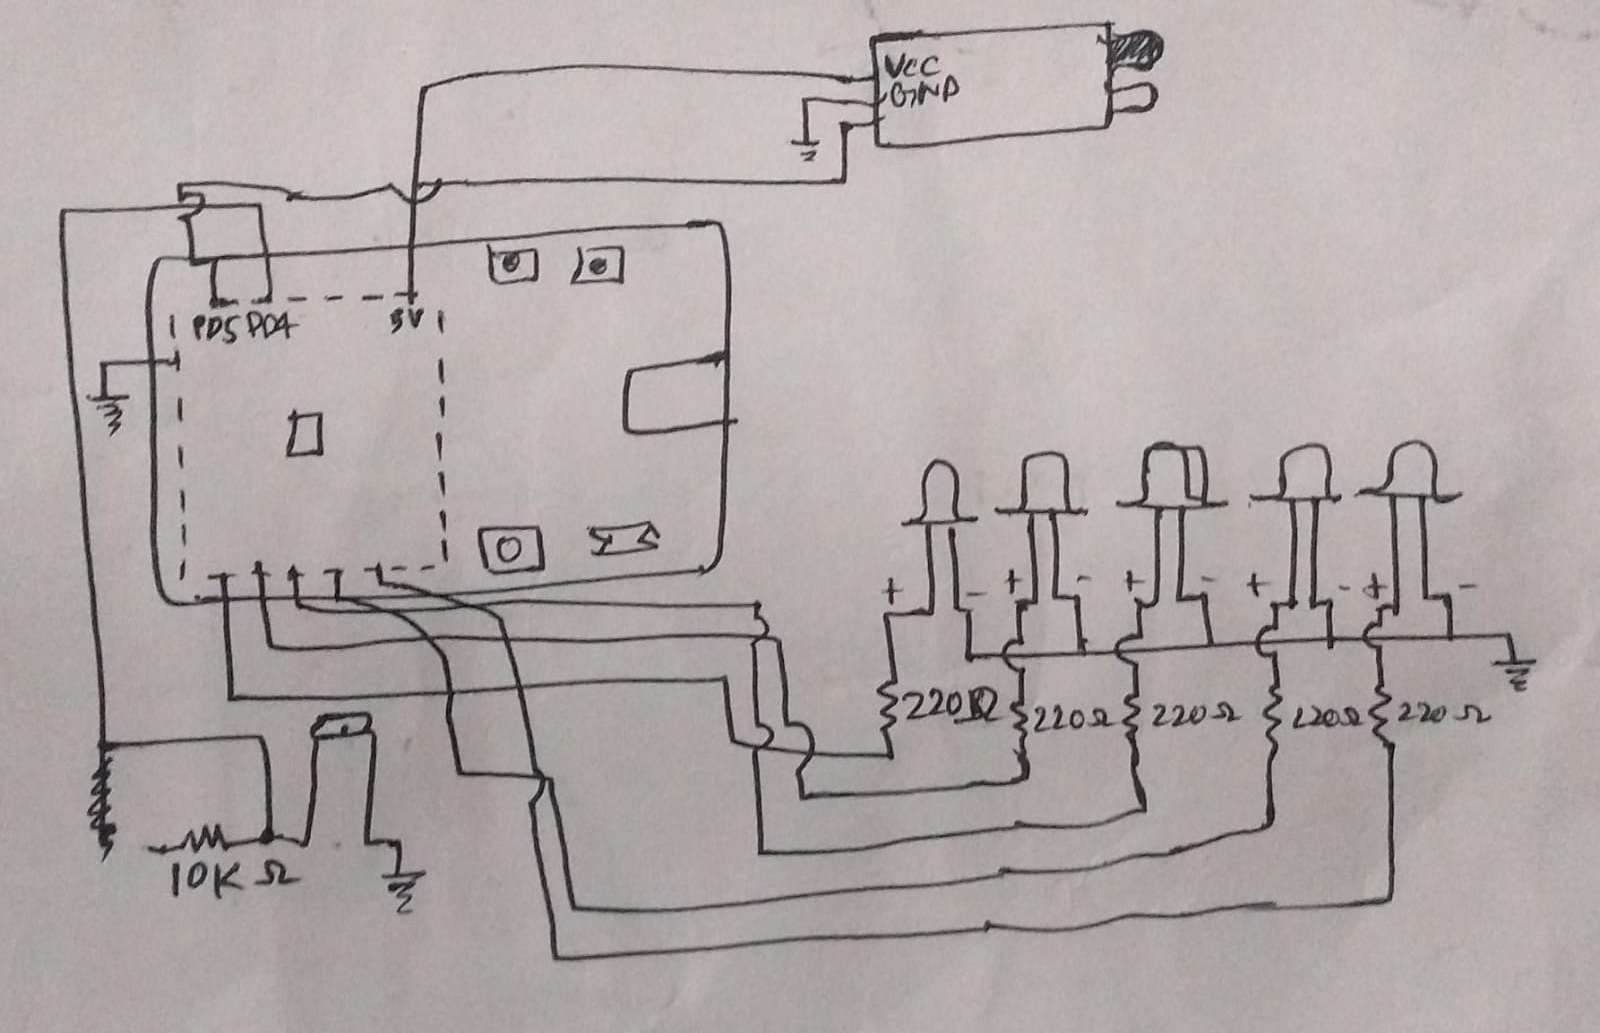 VCC
GND
PD5 PD4 5V
+ - + - + - + - + -
220Ω 220Ω 220Ω 220Ω 220Ω
10K Ω